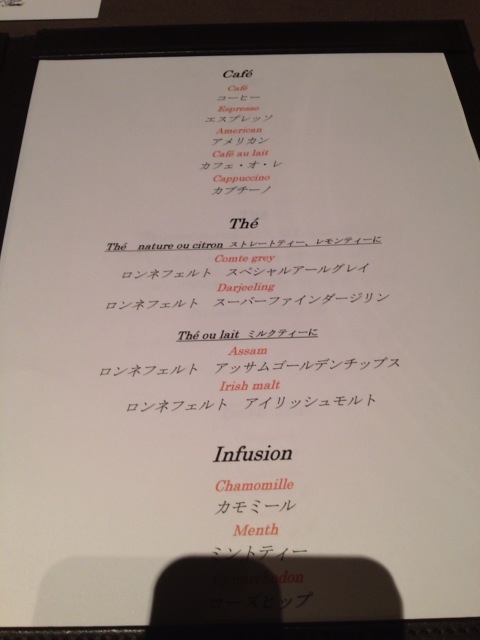 Café
Café
コーヒー
Espresso
エスプレッソ
American
アメリカン
Café au lait
カフェ・オ・レ
Cappuccino
カプチーノ
Thé
Thé nature ou citron ストレートティー、レモンティーに
Comte grey
ロンネフェルト スペシャルアールグレイ
Darjeeling
ロンネフェルト スーパーファインダージリン
Thé ou lait ミルクティーに
Assam
ロンネフェルト アッサムゴールデンチップス
Irish malt
ロンネフェルト アイリッシュモルト
Infusion
Chamomille
カモミール
Menth
ミントティー
ローズヒップ